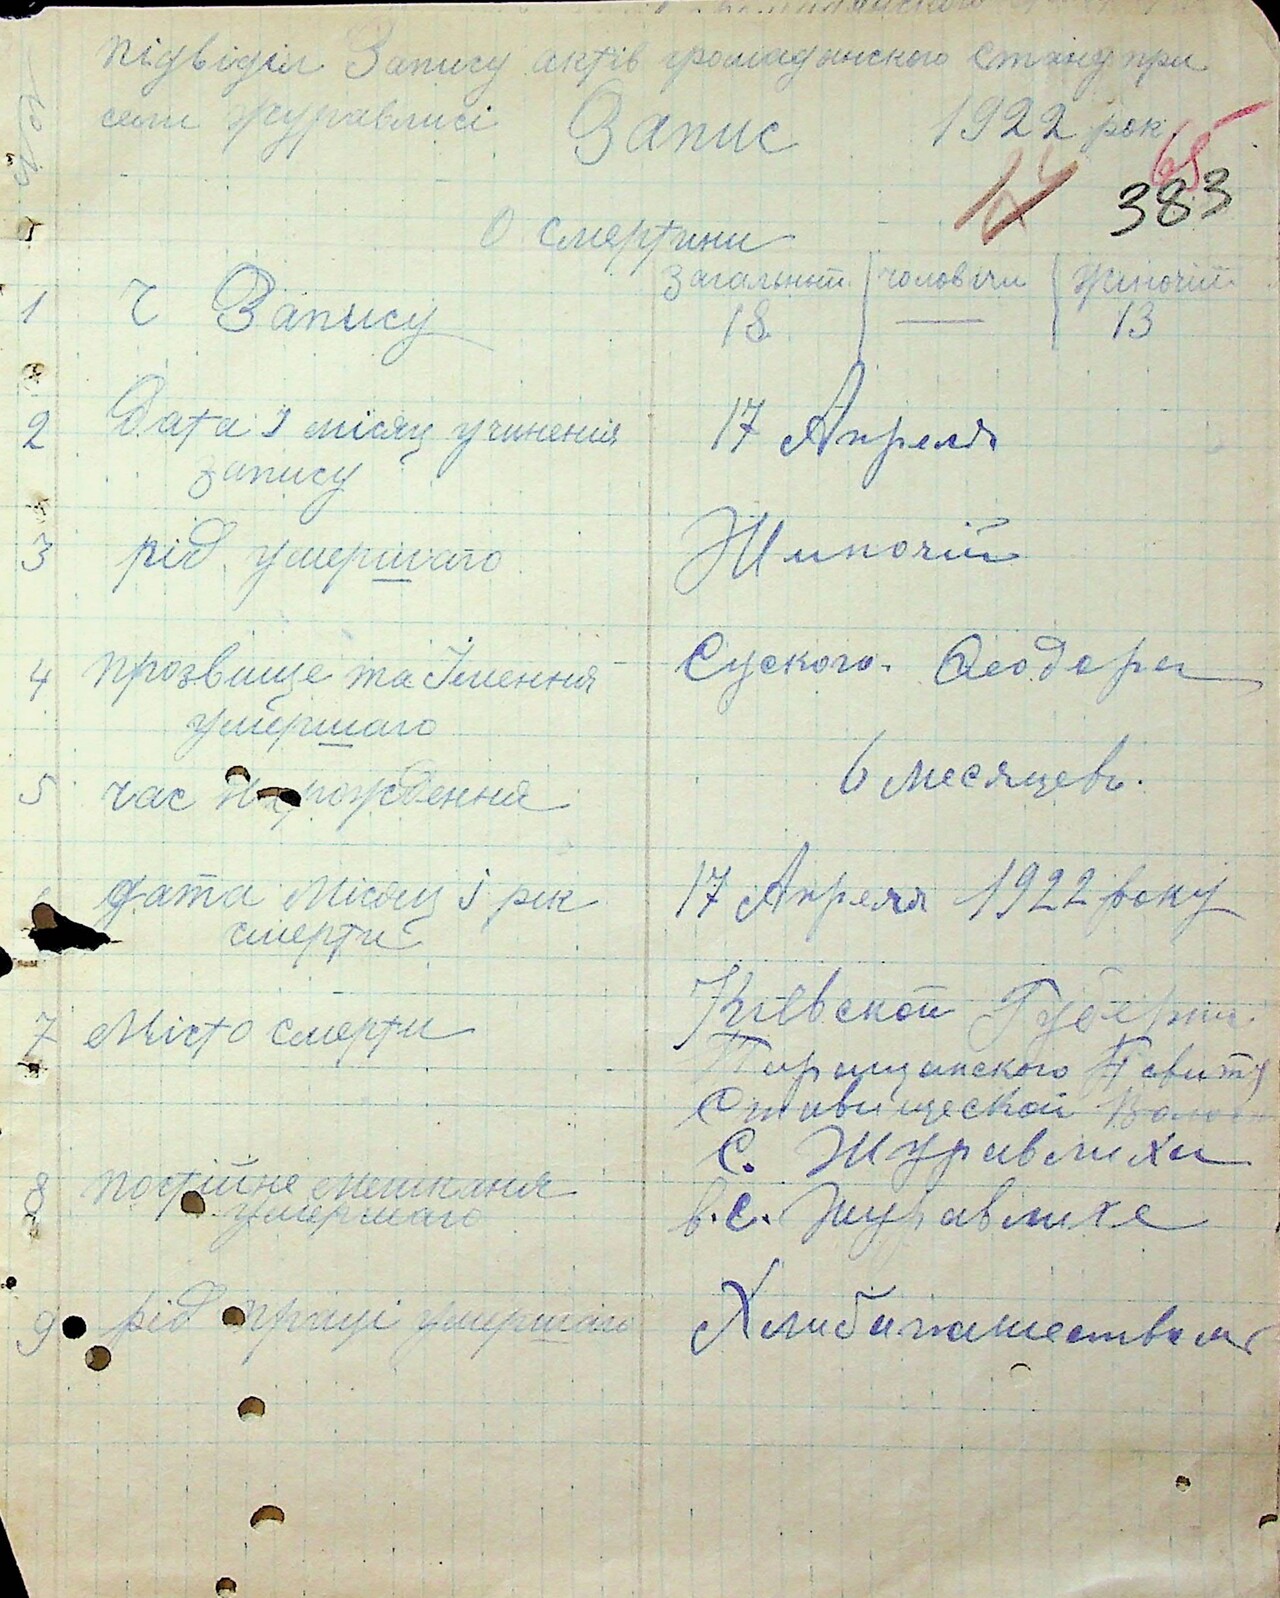 підвідділ Запису актів громадянського стану при
селі Журавлисі Запис 1922 рок
65
17 383
О смертини
Загальний чоловічи жіночій
1 Ч Запису 18 — 13
2 Дата і місяц учинення 17 Апреля
запису
3 рід умершаго Жиночий
4 прозвище та Імення Суского. Феодора
умершаго
5 час Нарождення 6 месяцевъ.
6 дата Місяц і рік 17 Апреля 1922 року
смерти
7 Місто смерти Київской Губерни
Таращанского Повиту
Ставищеской Волости
С. Журавлиха
8 постійне мешкання в. С. Журавлихе
умершаго
9 рід праці умершаго Хлибопашеством